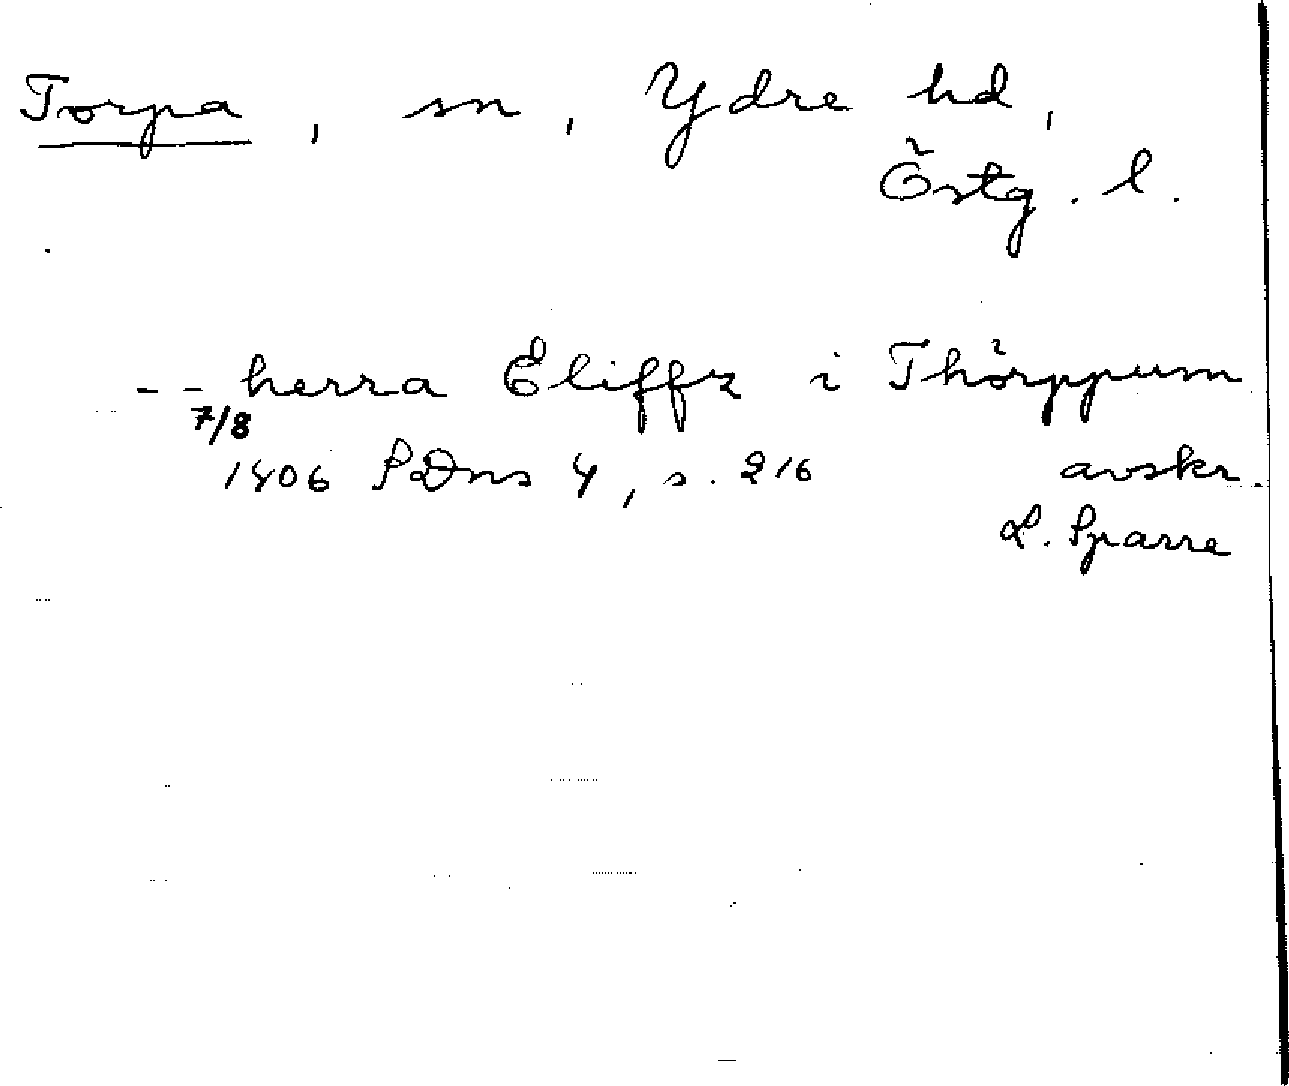 Torpa, sn, Ydre hd,
Östg. l.
-- herra Eliffz i Thörppum
7/8
1406 SDns 4, s. 216 avskr.
L. Sparre